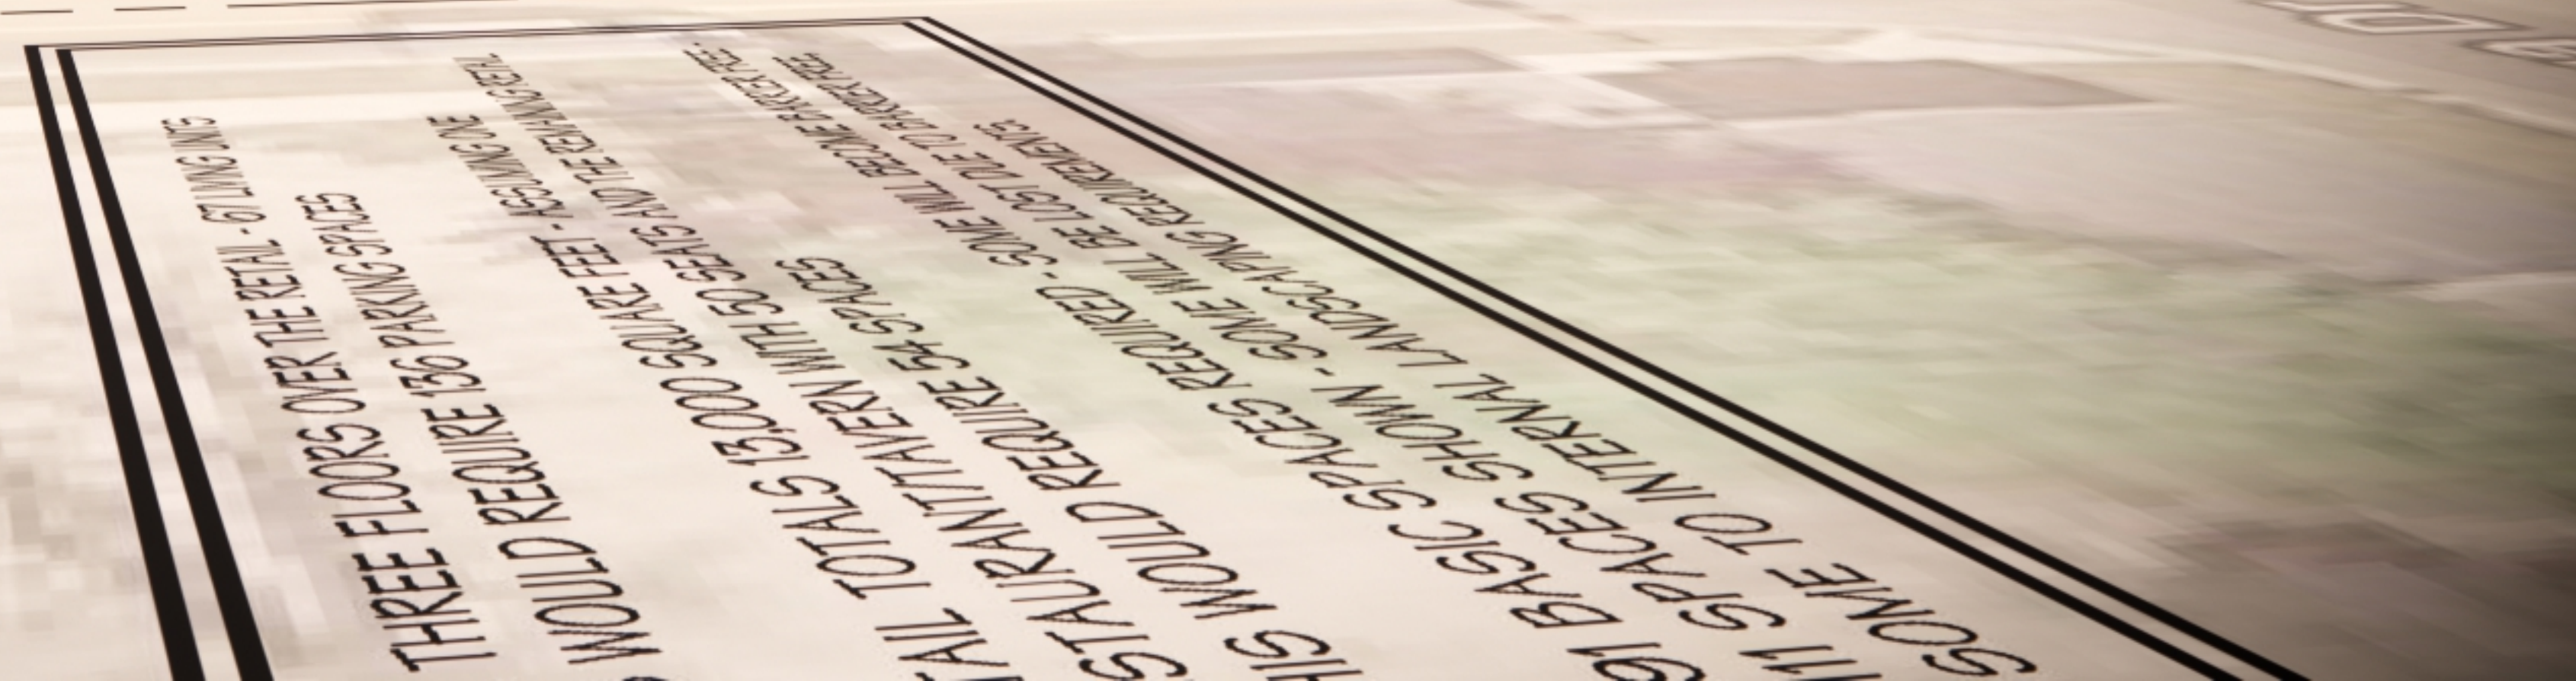 THREE FLOORS OVER THE RETAIL - 67 LIVING UNITS
WOULD REQUIRE 136 PARKING SPACES
TOTALS 13,000 SQUARE FEET - ASSUMING ONE
WITH 50 SEATS AND THE REMAINING RETAIL
WOULD REQUIRE 54 SPACES
BASIC SPACES REQUIRED - SOME WILL BECOME BARRIER FREE.
SPACES SHOWN - SOME WILL BE LOST DUE TO BARRIER FREE,
SOME TO INTERNAL LANDSCAPING REQUIREMENTS.